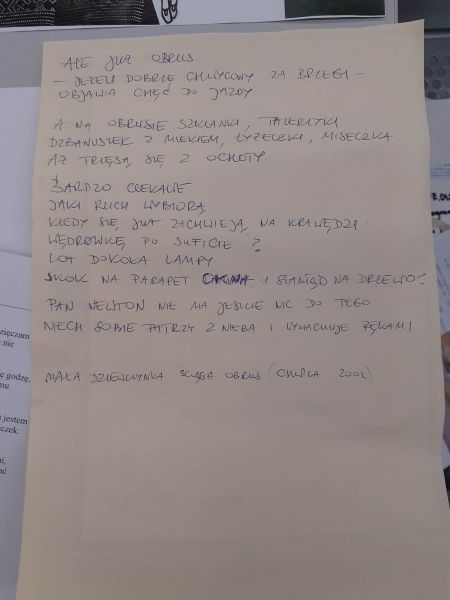 ALE JUŻ OBRUS
– JEŻELI DOBRZE CHWYCONY ZA BRZEGI –
OBJAWIA CHĘĆ DO JAZDY
A NA OBRUSIE SZKLANKI, TALERZYKI
DZBANUSZEK Z MLEKIEM, ŁYŻECZKI, MISECZKA
AŻ TRZĘSĄ SIĘ Z OCHOTY.
BARDZO CIEKAWE
JAKI RUCH WYBIORĄ
KIEDY SIĘ JUŻ ZACHWIEJĄ NA KRAWĘDZI:
WĘDRÓWKĘ PO SUFICIE?
LOT DOKOŁA LAMPY
SKOK NA PARAPET I STAMTĄD NA DRZEWO?
PAN NEWTON NIE MA JESZCZE NIC DO TEGO
NIECH SOBIE PATRZY Z NIEBA I WYMACHUJE RĘKAMI
MAŁA DZIEWCZYNKA ŚCIĄGA OBRUS (CHWILA 2002)
zięczam
nie
ę godzę,
mu
jestem
czek.
ni,
ać